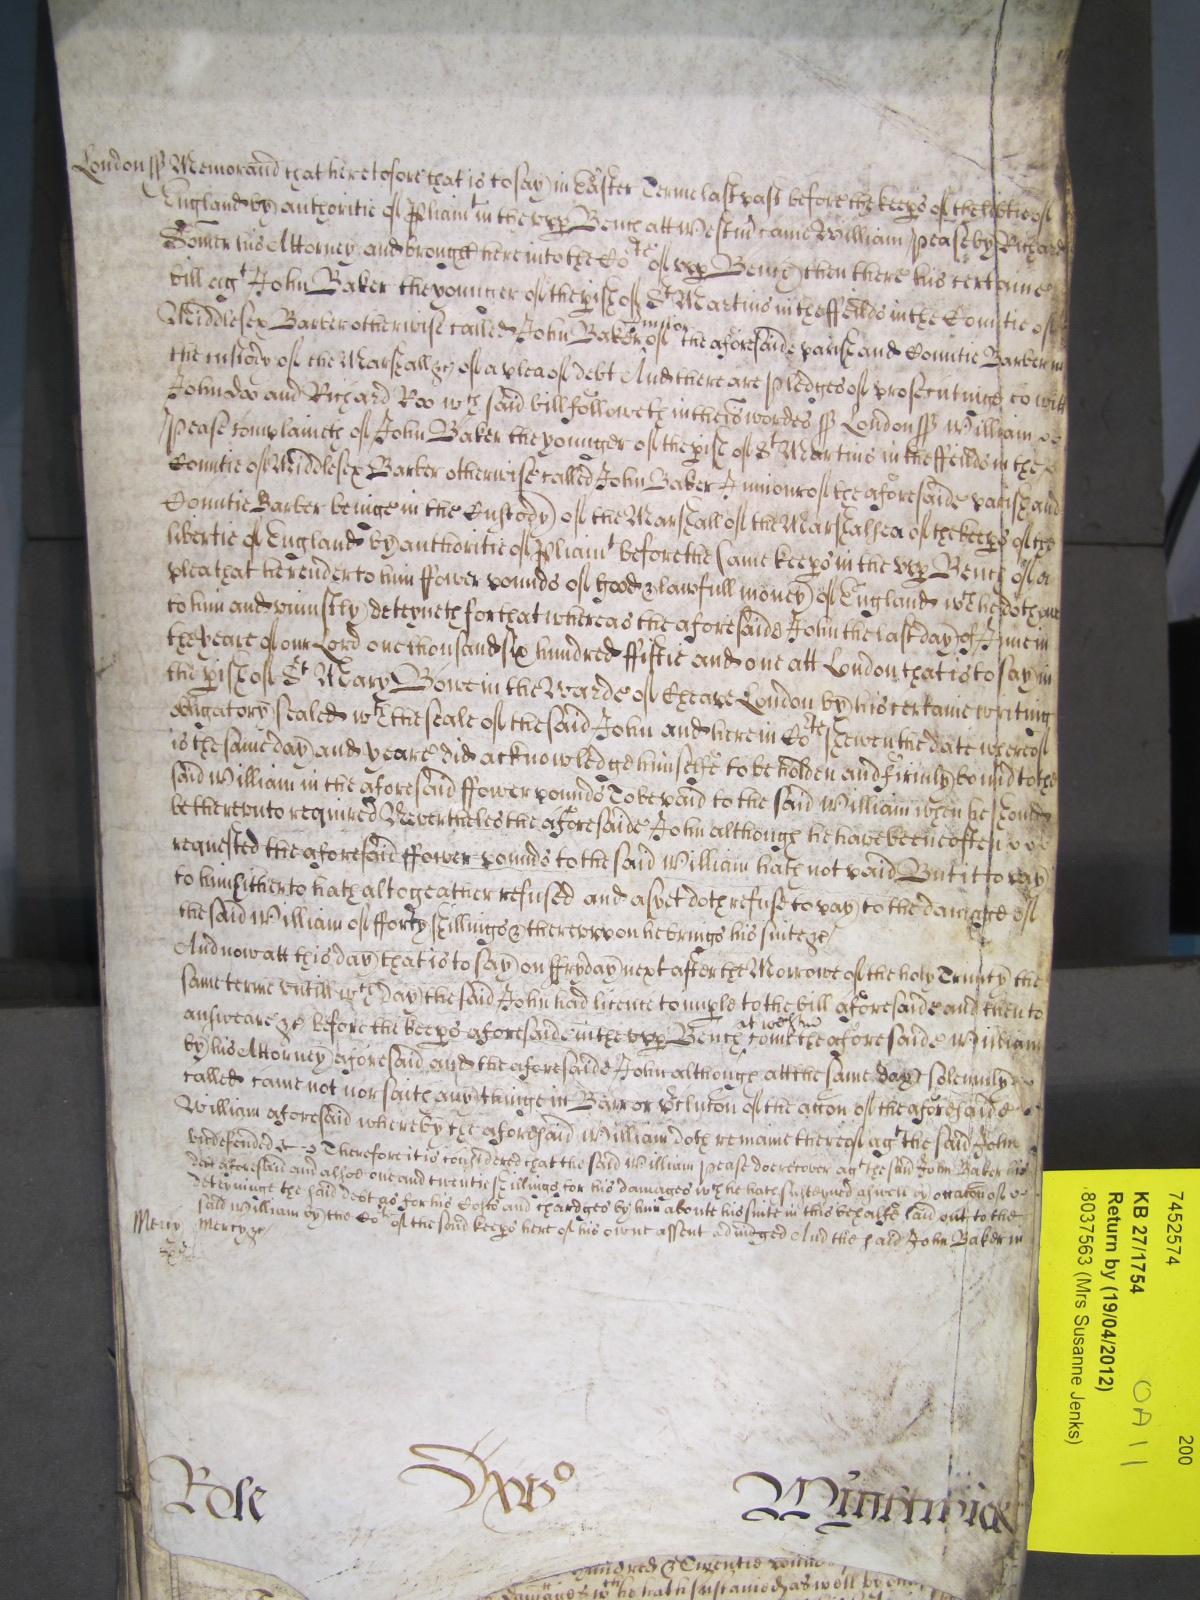 London ss Memorand that heretofore that is to say in Easter Terme last past before the keeps of the libtie of
England by authoritie of Pliamt in the upp Bench att Westm came William Pease by Richard
Somer his Attorney and brought here into the Cote of upp Bench then there his certaine
bill agt John Baker the younger of the pish of St Martins in the ffeilds in the Countie of
Middlesex Barber otherwise called John Baker Junior of the aforesaide parish and Countie Barber in
the custody of the Marshall &c of a plea of debt And there are pledges of prosecutinge to witt
John Doo and Richard Roo wch said bill followeth in theis wordes ss London ss William
Pease complaineth of John Baker the younger of the pish of St Martins in the ffeilds in the
Countie of Middlesex Barber otherwise called John Baker Junior of the aforesaide parish and
Countie Barber beinge in the Custody of the Marshall of the Marshalsea of the keeps of the
libertie of England by authoritie of Pliamt before the same keeps in the upp Bench of a
plea that he render to him ffower pounds of good & lawfull money of England wch he doth owe
to him and uniustly deteyneth for that whereas the aforesaide John the last day of June in
the yeare of our Lord one thousand six hundred ffiftie and one att London that is to say in
the pish of St Mary Bowe in the Warde of Cheape London by his certaine writing
obligatory sealed wth the seale of the said John and here in Cote shewen the date whereof
is the same day and yeare did acknowledge himselfe to be holden and firmly bound to the
said William in the aforesaid ffower pounds To be paid to the said William when he should
be thereunto required Nevertheles the aforesaide John although he have been often
requested the aforesaid ffower pounds to the said William hath not paid But it to pay
to him hitherto hath altogeather refused and as yet doth refuse to pay to the damage of
the said William of fforty shillings & thereuppon he brings his suite &c
And now att this day that is to say on ffryday next after the Morrowe of the holy Trinity the
same terme untill wch day the said John had licence to imple to the bill aforesaide and then to
answeare &c before the keeps aforesaide in the upp Bench at Westm come the aforesaide William
by his Attorney aforesaid and the aforesaide John although att the same day solemnly
called came not nor saith any thinge in Barr or pclusion of the accon of the aforesaide
William aforesaid whereby the aforesaid William doth remaine thereof agt the said John
undefended &c Therefore it is considered that the said William Pease doe recover agt the said John Baker his
debt aforesaid and alsoe one and twentie shillings for his damages wch he hath susteyned aswell by occation of
deteyninge the said debt as for his Costs and chardges by him aboute his suite in this behalfe laid out to the
said William by the Cote of the said keeps here of his owne assent adiudged And the said John Baker in
Mercy Mercy &c
Rose xvo Wightwick
hundred & Twentie pound
damages wch he hath sustained as well by
7452574 200
KB 27/1754
Return by (19/04/2012)
8037563 (Mrs Susanne Jenks)
OA 11